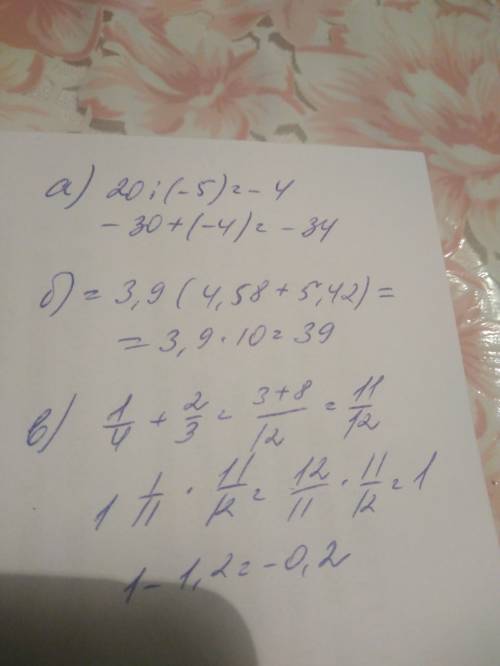 а) 20 : (-5) = -4
-30 + (-4) = -34
б) = 3,9 ( 4,58 + 5,42) =
= 3,9 · 10 = 39
в) 1/4 + 2/3 = 3+8/12 = 11/12
1 1/11 · 11/12 = 12/11 · 11/12 = 1
1 - 1,2 = -0,2